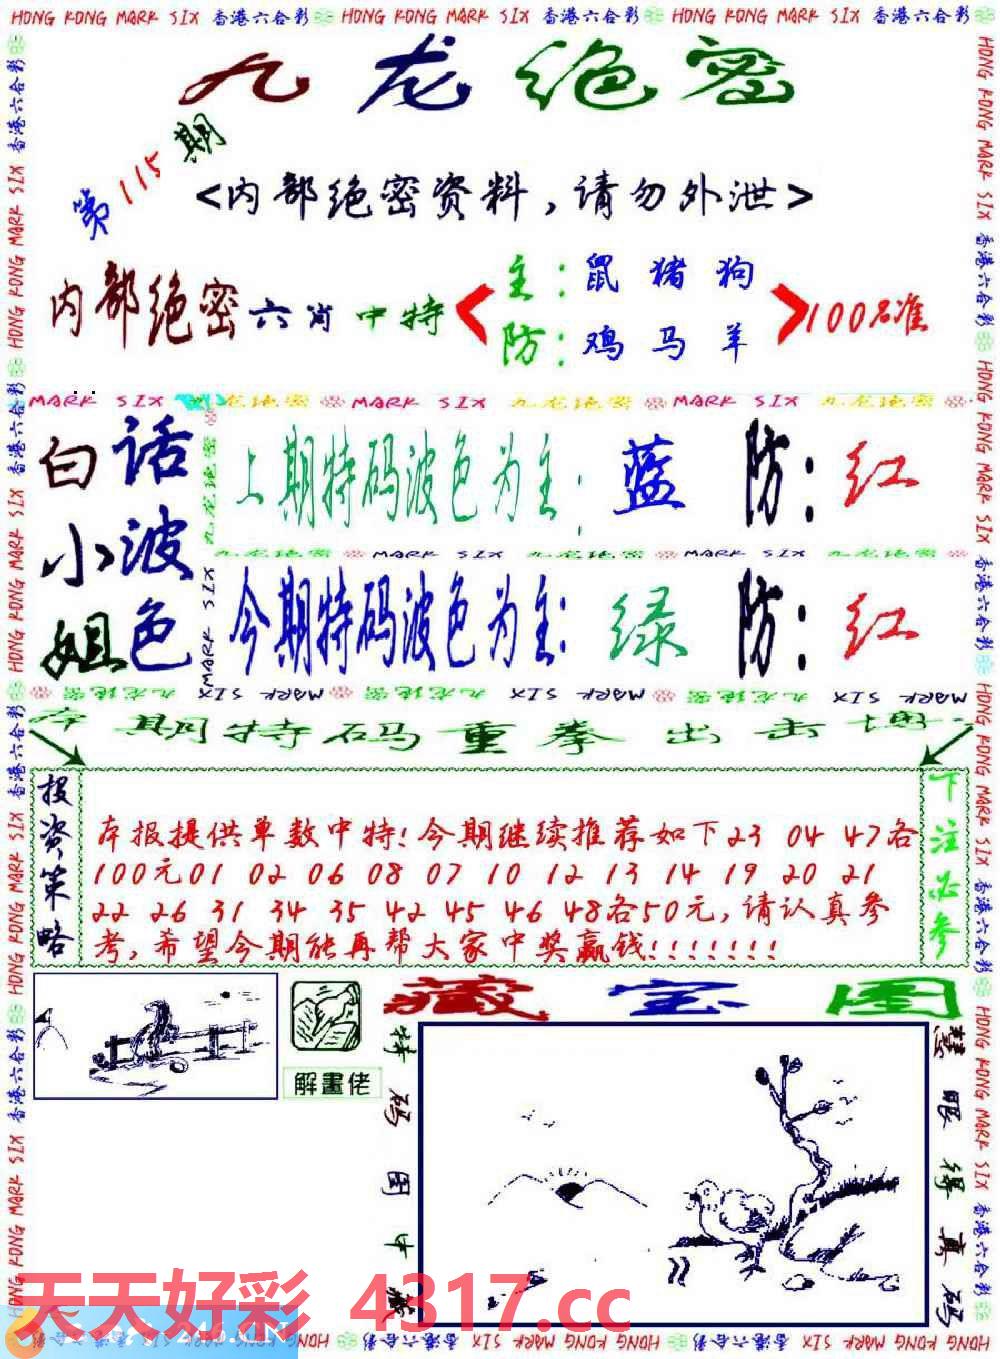 HONG KONG MARK SIX 香港六合彩 HONG KONG MARK SIX 香港六合彩 HONG KONG MARK SIX 香港六合彩
九龙绝密
第115期
<内部绝密资料,请勿外泄>
内部绝密六肖中特
主:鼠 猪 狗
防:鸡 马 羊
100%准
MARK SIX 九龙绝密 MARK SIX 九龙绝密 MARK SIX 九龙绝密
白小姐
话波色
上期特码波色为主: 蓝 防: 红
九龙绝密 MARK SIX 九龙绝密 MARK SIX 九龙绝密
今期特码波色为主: 绿 防: 红
MARK SIX 九龙绝密 MARK SIX 九龙绝密 MARK SIX 九龙绝密
本期特码重拳出击
投资策略
本报提供单数中特!今期继续推荐如下23 04 47各
100元01 02 06 08 07 10 12 13 14 19 20 21
22 26 31 34 35 42 45 46 48各50元,请认真参
考,希望今期能再帮大家中奖赢钱!!!!!!!
下注必参
解畫佬
藏宝图
特码图中藏
慧眼得真码
天天好彩 4317.cc
HONG KONG MARK SIX 香港六合彩